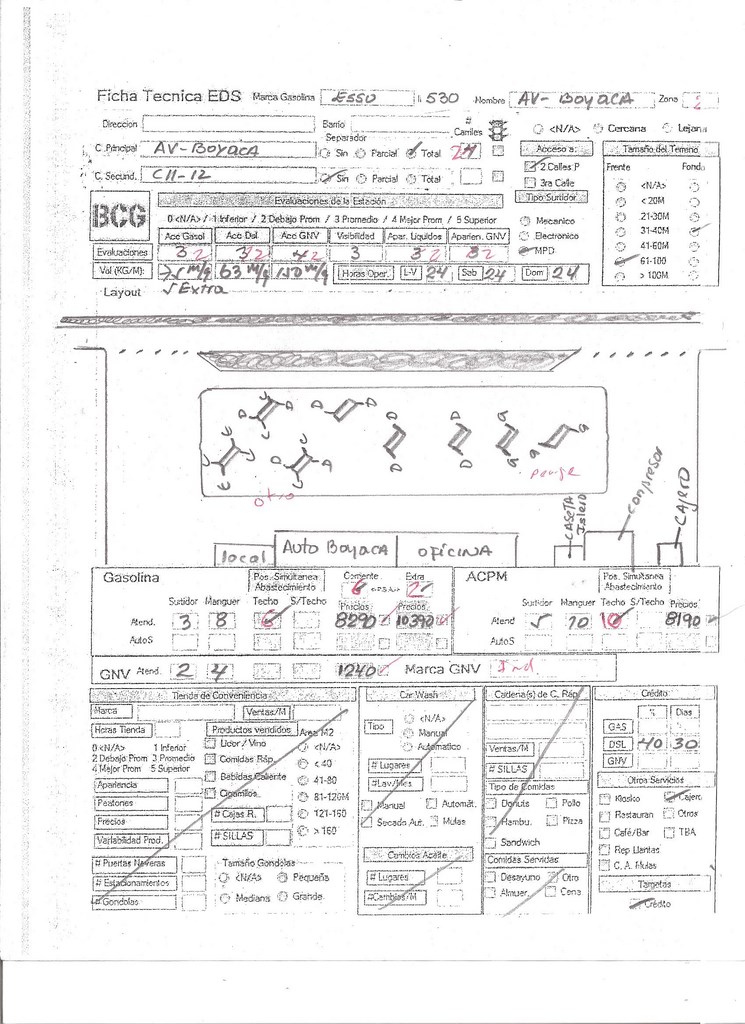 Ficha Tecnica EDS Marca Gasolina ESSO 530 Nombre AV-BOYACA Zona 2
Direccion Barrio # Carriles <N/A> Cercana Lejana
Separador
C. Principal AV-BOYACA Sin Parcial Total Acceso a: Tamaño del Terreno
C. Secund. Cll-12 Sin Parcial Total 2 Calles P Frente Fondo
3ra Calle <N/A>
BCG Evaluaciones de la Estación Tipo Surtidor < 20M
0 <N/A> / 1 Inferior / 2 Debajo Prom / 3 Promedio / 4 Mejor Prom / 5 Superior Mecanico 21-30M
Acc Gasol Acc Dsl. Acc GNV Visibilidad Apar. Liquidos Aparien. GNV Electronico 31-40M
Evaluaciones 3 2 3 2 4 2 3 3 2 3 2 MPD 41-60M
Vol (KG/M): 63 m/g 150 m/g Horas Oper. L-V 24 Sab 24 Dom 24 61-100
> 100M
Layout Extra
otro
pouge
local Auto Boyaca OFICINA CASETA Islero conpresor CAJERO
Gasolina Pos. Simultanea Abastecimiento Corriente 6 Extra 2 ACPM Pos. Simultanea Abastecimiento
Surtidor Manguer Techo S/Techo Precios Precios Surtidor Manguer Techo S/Techo Precios
Atend. 3 8 6 8290 10390 Atend 5 10 10 8190
AutoS AutoS
GNV Atend. 2 4 1240 Marca GNV Ind
Tienda de Conveniencia Car Wash Cadena(s) de C. Ráp. Crédito
Marca Ventas/M % Dias
Horas Tienda Productos vendidos Area M2 Tipo <N/A> GAS
0 <N/A> 1 Inferior Licor / Vino <N/A> Manual Ventas/M DSL 40 30
2 Debajo Prom 3 Promedio Comidas Ráp. < 40 Automatico # SILLAS GNV
4 Mejor Prom 5 Superior Bebidas Caliente 41-80 # Lugares Tipo de Comidas Otros Servicios
Apariencia Cigarrillos 81-120M # Lav/Mes Donuts Pollo Kiosko Cajero
Peatones # Cajas R. 121-160 Manual Automát. Hambu. Pizza Restauran Otros
Precios # SILLAS > 160 Secado Aut. Mulas Sandwich Café/Bar TBA
Variabilidad Prod. Cambios Aceite Comidas Servidas Rep Llantas
# Puertas Neveras Tamaño Gondolas # Lugares Desayuno Otro C. A. Mulas
# Estacionamientos <N/A> Pequeña # Cambios/M Almuer. Cena Tarjetas
# Gondolas Mediana Grande Crédito